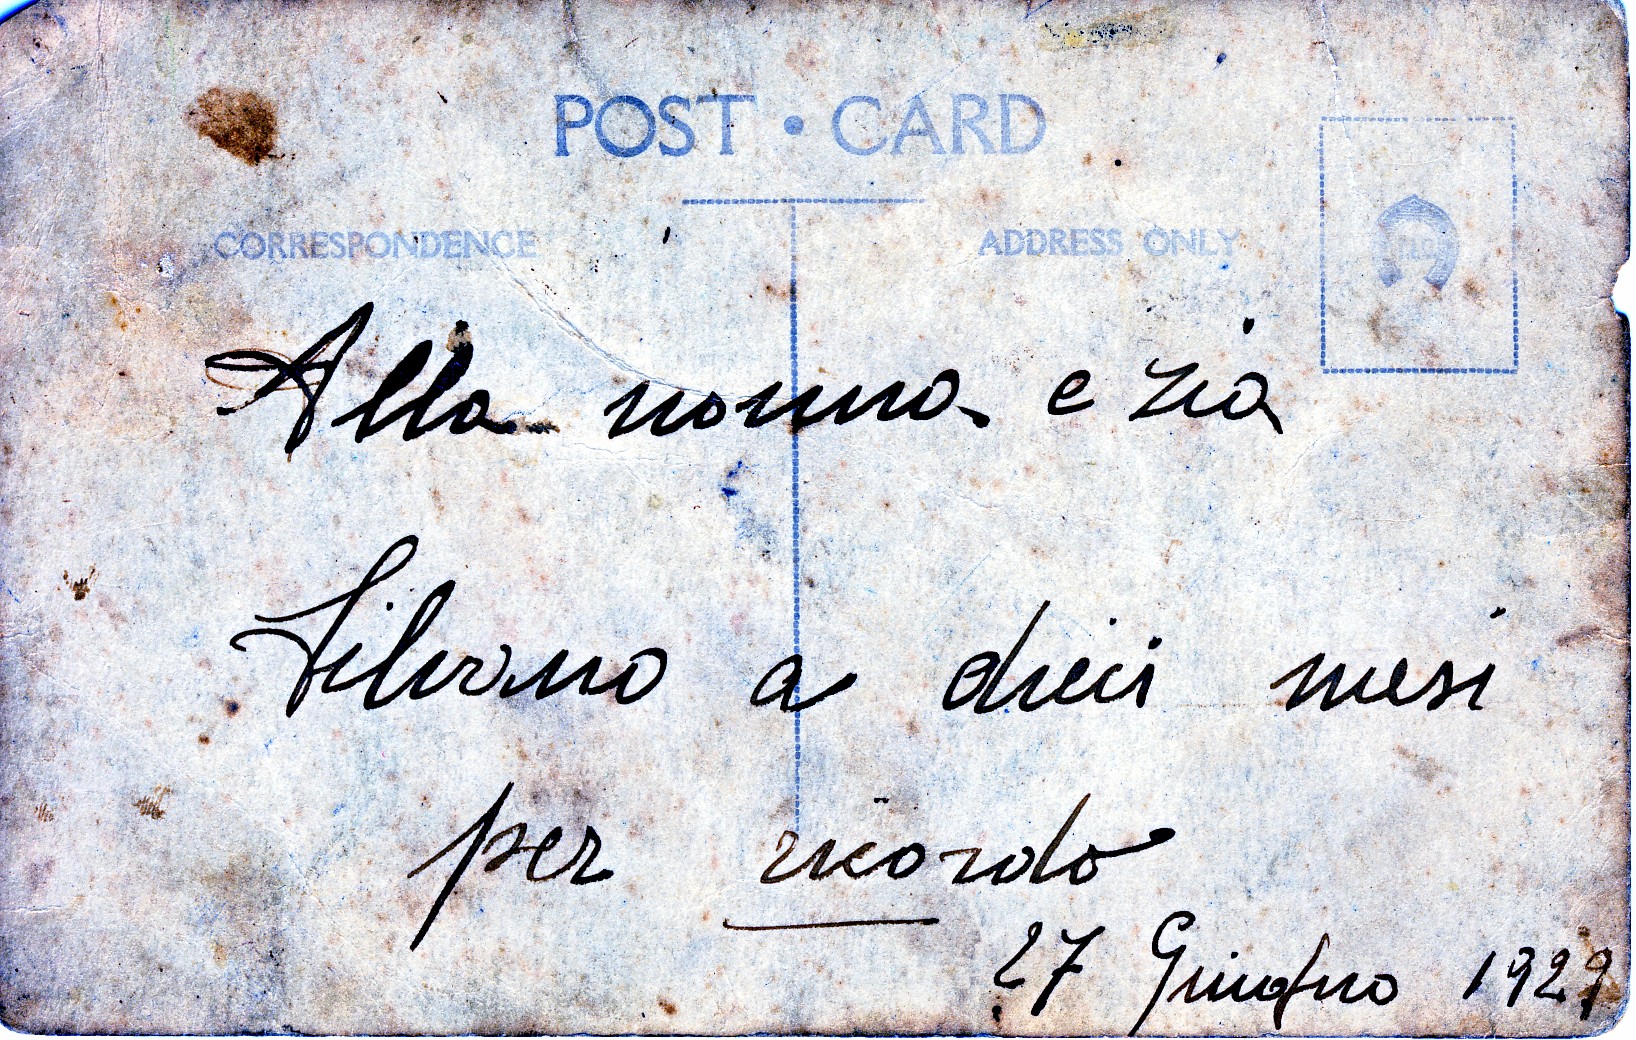 POST • CARD
CORRESPONDENCE
ADDRESS ONLY
Alla nonna e zia
Silvano a dieci mesi
per ricordo
27 Giugno 1929